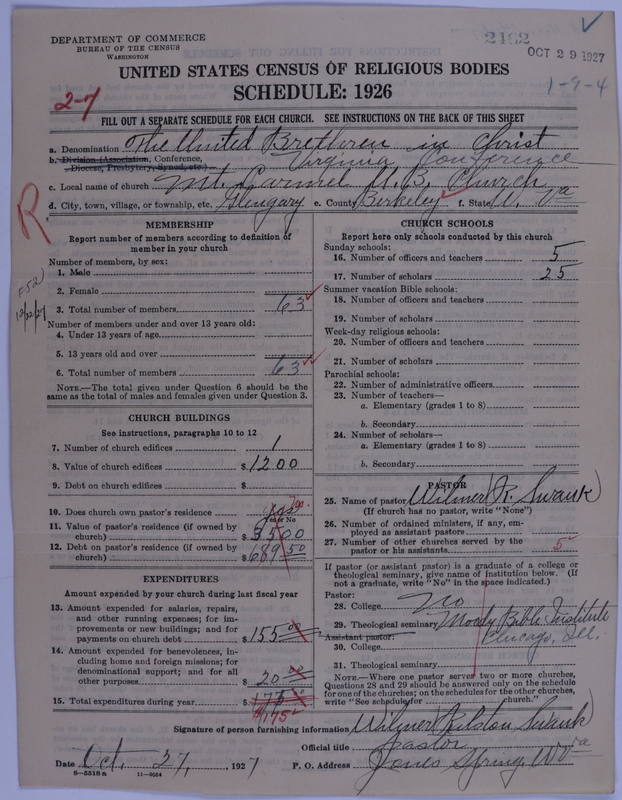 DEPARTMENT OF COMMERCE
BUREAU OF THE CENSUS
WASHINGTON
2192
OCT 29 1927
1-9-4
UNITED STATES CENSUS OF RELIGIOUS BODIES
SCHEDULE: 1926
2-7
FILL OUT A SEPARATE SCHEDULE FOR EACH CHURCH. SEE INSTRUCTIONS ON THE BACK OF THIS SHEET
a. Denomination The United Brethren in Christ
b. Division (Association, Conference, Diocese, Presbytery, Synod, etc.) Virginia Conference
c. Local name of church Mt. Carmel U.B. Church
d. City, town, village, or township, etc. Glengary e. County Berkeley f. State W. Va
R
MEMBERSHIP
Report number of members according to definition of
member in your church
Number of members, by sex:
1. Male
2. Female
3. Total number of members 63
Number of members under and over 13 years old:
4. Under 13 years of age
5. 13 years old and over
6. Total number of members 63
NOTE.—The total given under Question 6 should be the
same as the total of males and females given under Question 3.
CHURCH BUILDINGS
See instructions, paragraphs 10 to 12
7. Number of church edifices 1
8. Value of church edifices $1200
9. Debt on church edifices $
10. Does church own pastor's residence yes Yes.
Yes or No
11. Value of pastor's residence (if owned by
church) $3500
12. Debt on pastor's residence (if owned by
church) $689.50
EXPENDITURES
Amount expended by your church during last fiscal year
13. Amount expended for salaries, repairs,
and other running expenses; for im-
provements or new buildings; and for
payments on church debt $155.00
14. Amount expended for benevolences, in-
cluding home and foreign missions; for
denominational support; and for all
other purposes $20.00
15. Total expenditures during year $175
$175
CHURCH SCHOOLS
Report here only schools conducted by this church
Sunday schools:
16. Number of officers and teachers 5
17. Number of scholars 25
Summer vacation Bible schools:
18. Number of officers and teachers
19. Number of scholars
Week-day religious schools:
20. Number of officers and teachers
21. Number of scholars
Parochial schools:
22. Number of administrative officers
23. Number of teachers—
a. Elementary (grades 1 to 8)
b. Secondary
24. Number of scholars—
a. Elementary (grades 1 to 8)
b. Secondary
PASTOR
25. Name of pastor Wilmer R. Swank
(If church has no pastor, write "None")
26. Number of ordained ministers, if any, em-
ployed as assistant pastors
27. Number of other churches served by the
pastor or his assistants 5
If pastor (or assistant pastor) is a graduate of a college or
theological seminary, give name of institution below. (If
not a graduate, write "No" in the space indicated.)
Pastor:
28. College No
29. Theological seminary Moody Bible Institute
Chicago, Ill.
Assistant pastor:
30. College
31. Theological seminary
NOTE.—Where one pastor serves two or more churches,
Questions 28 and 29 should be answered only on the schedule
for one of the churches; on the schedules for the other churches,
write "See schedule for church."
Signature of person furnishing information Wilmer Ralston Swank
Official title Pastor
Date Oct. 27, 1927 P. O. Address Jones Spring, W Va
8-5518a 11-9084